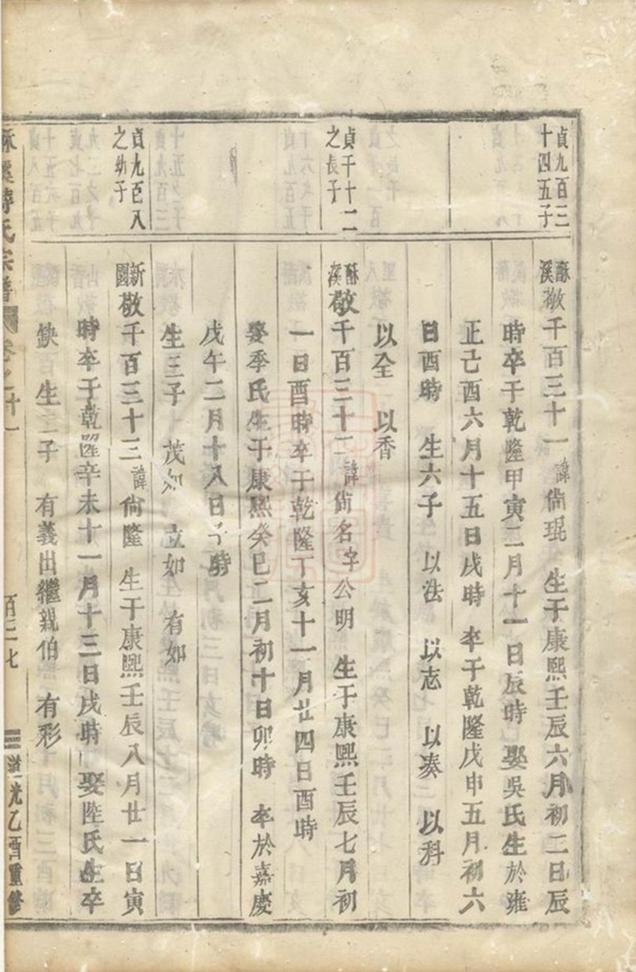 貞九百三
十四五子
酥溪敬千百三十一 諱尙琨 生于康熙壬辰六月初二日辰
時卒于乾隆甲寅二月十一日辰時 娶吳氏生於雍
正己酉六月十五日戌時 卒于乾隆戊申五月初六
日酉時 生六子 以法 以志 以湊 以科
以全 以香
貞千十二
之長子
酥溪敬千百三十二 諱尙名字公明 生于康熙壬辰七月初
一日酉時卒于乾隆丁亥十一月廿四日酉時
娶季氏生于康熙癸巳二月初十日卯時 卒於嘉慶
戊午二月十八日子時
生三子 茂如 立如 有如
貞九百八
之幼子
新國敬千百三十三 諱尙隆 生于康熙壬辰八月廿一日寅
時卒于乾隆辛未十一月十三日戌時 娶陸氏生卒
缺 生二子 有義出繼親伯 有彩
氏宗譜 卷之十一 百三七 道光乙酉重修